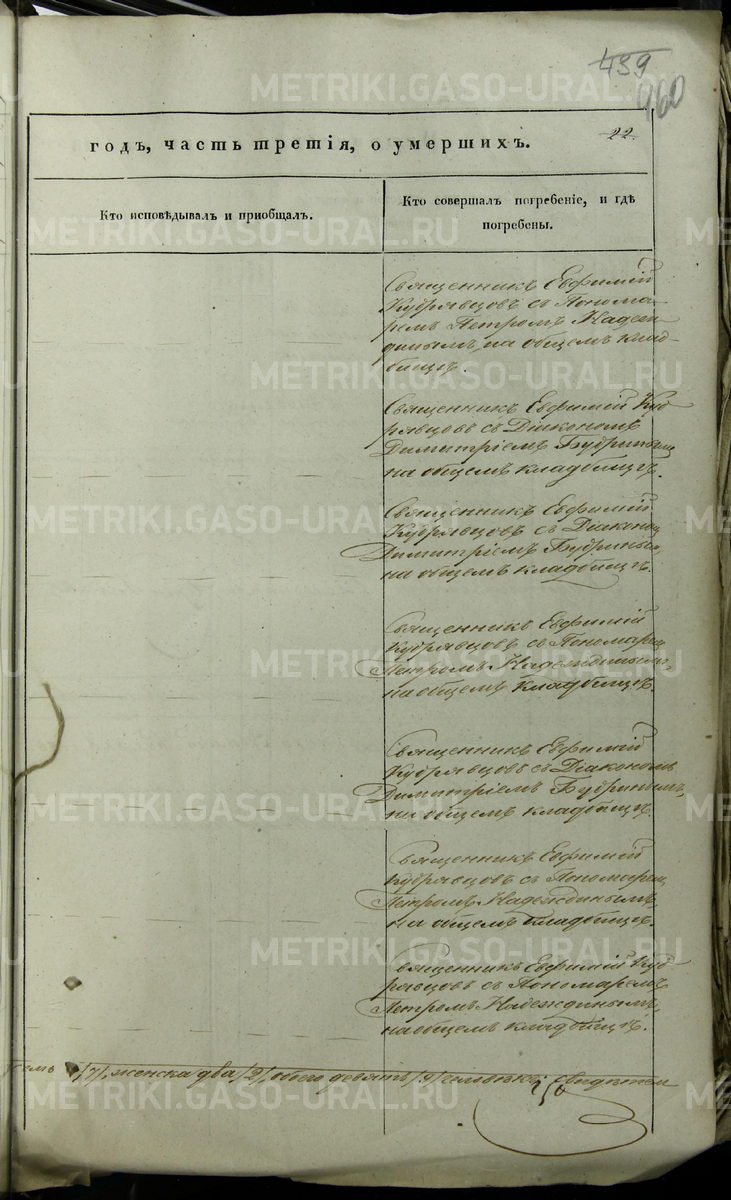 439
960
годъ, часть третія, о умершихъ.
22.
Кто исповѣдывалъ и приобщалъ.
Кто совершалъ погребеніе, и гдѣ
погребены.
Священникъ Евфимій
Кудрявцовъ съ Понома-
ремъ Петромъ Надеж-
динымъ, на общемъ клад-
бищѣ.
Священникъ Евфимій Куд
рявцовъ съ Діакономъ
Димитріемъ Будринымъ
на общемъ кладбищѣ.
Священникъ Евфимій
Кудрявцовъ съ Діакономъ
Димитріемъ Будринымъ,
на общемъ кладбищѣ.
Священникъ Евфимій
Кудрявцовъ съ Пономаремъ
Петромъ Надеждинымъ,
на общемъ кладбищѣ.
Священникъ Евфимій
Кудрявцовъ съ Діакономъ
Димитріемъ Будринымъ,
на общемъ кладбищѣ.
Священникъ Евфимій
Кудрявцовъ съ Пономаремъ
Петромъ Надеждинымъ,
на общемъ кладбищѣ.
Священникъ Евфимій Куд
рявцовъ съ Пономаремъ
Петромъ Надеждинымъ,
на общемъ кладбищѣ.
семь /7/, женска два /2/, обоего девять /9/ человѣкъ
METRIKI.GASO-URAL.RU